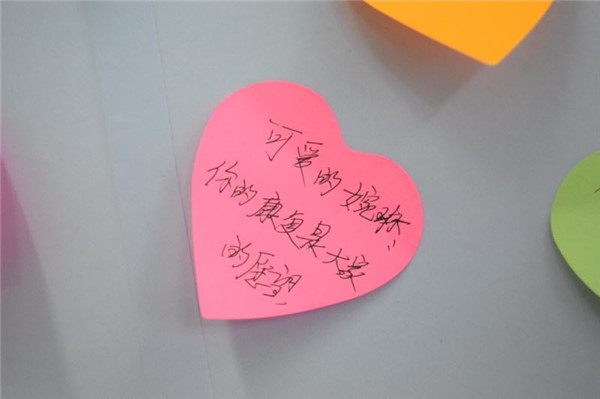 可爱的婉琳：
你的康复是大家
的愿望